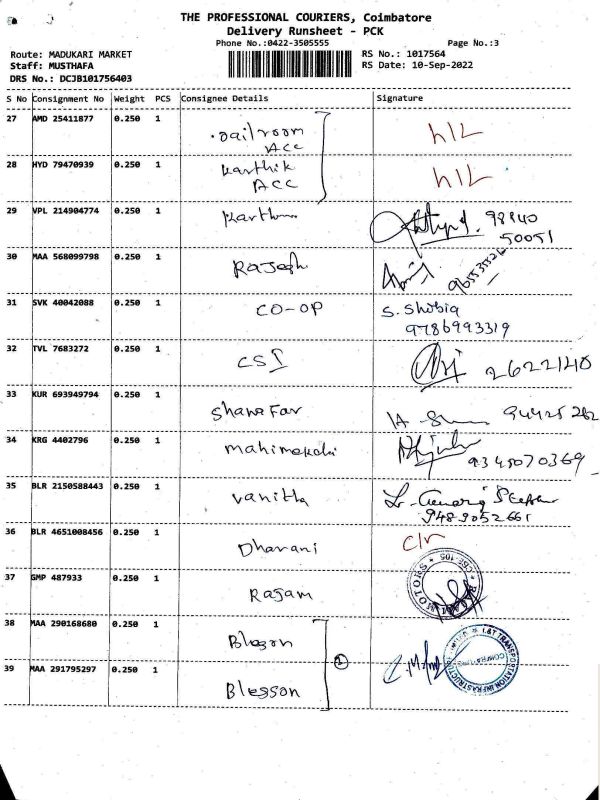 THE PROFESSIONAL COURIERS, Coimbatore
Delivery Runsheet - PCK
Phone No.:0422-3505555 Page No.:3
Route: MADUKARI MARKET RS No.: 1017564
Staff: MUSTHAFA RS Date: 10-Sep-2022
DRS No.: DCJB101756403
S No Consignment No Weight PCS Consignee Details Signature
27 AMD 25411877 0.250 1 room
Acc
28 HYD 79470939 0.250 1 Karthik
ACC
29 VPL 214904774 0.250 1 98840
50051
30 MAA 568099798 0.250 1 Rajesh
31 SVK 40042088 0.250 1 CO-OP S. Shobia
9786993319
32 TVL 7683272 0.250 1 CSI 26221140
33 KUR 693949794 0.250 1
34 KRG 4402796 0.250 1 9345070369
35 BLR 2150588443 0.250 1 Vanitha
9489052661
36 BLR 4651008456 0.250 1 Dharani
37 GMP 487933 0.250 1 Rajam
MOTORS
38 MAA 290168680 0.250 1 Blesson
39 MAA 291795297 0.250 1 Blesson
L&T TRANSPORTATION INFRASTRUCTURE LIMITED